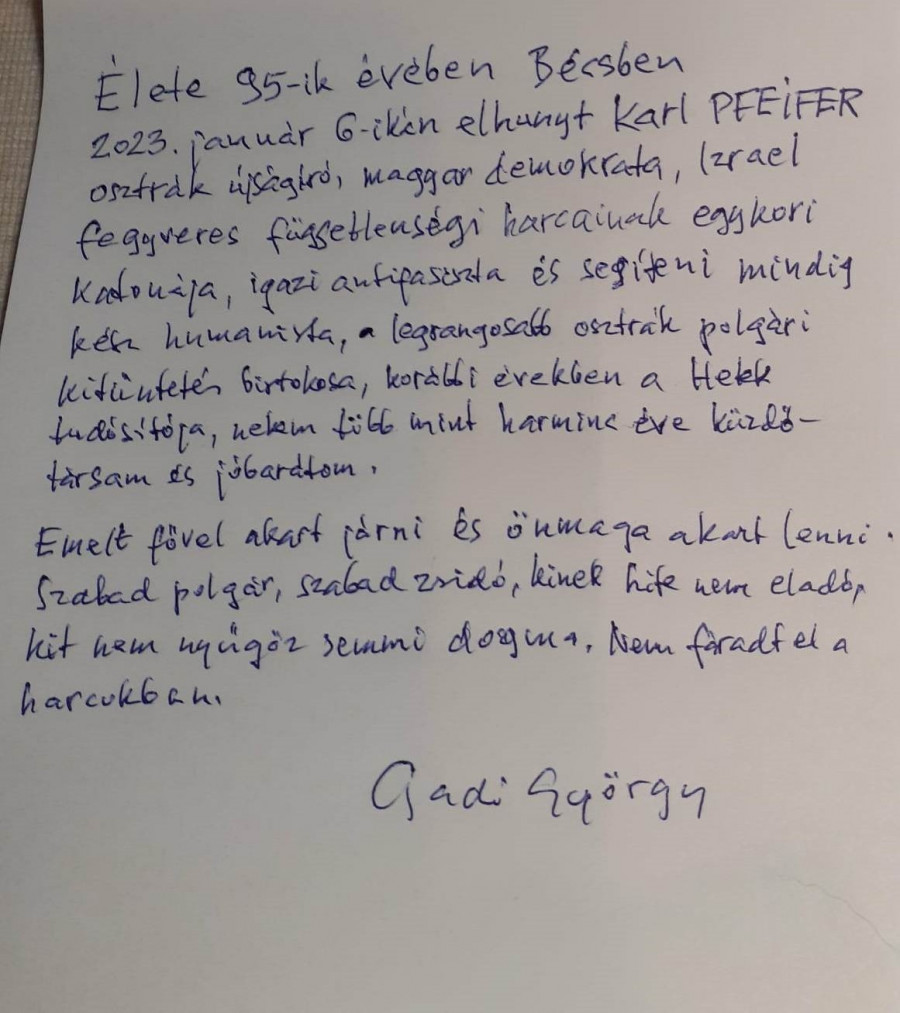 Élete 95-ik évében Bécsben
2023. január 6-ikán elhunyt Karl PFEIFER
osztrák újságíró, magyar demokrata, Izrael
fegyveres függetlenségi harcainak egykori
katonája, igazi antifasiszta és segíteni mindig
kész humanista, a legrangosabb osztrák polgári
kitüntetés birtokosa, korábbi években a Hetek
tudósítója, nekem több mint harminc éve küzdő-
társam és jóbarátom.
Emelt fővel akart járni és önmaga akart lenni.
Szabad polgár, szabad zsidó, kinek hite nem eladó,
kit nem nyűgöz semmi dogma. Nem fáradt el a
harcokban.
Gadó György